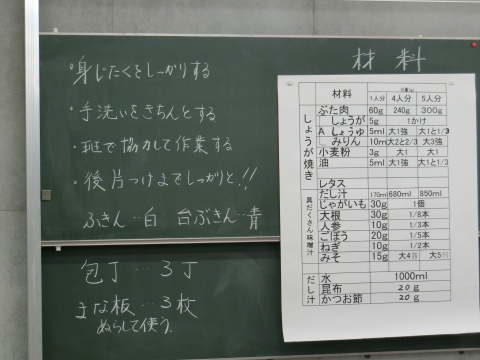 ・身じたくをしっかりする
・手洗いをきちんとする
・班で協力して作業する
・後片つけまでしっかりと!!
ふきん…白 台ぶきん…青
包丁…3丁
まな板…3枚
ぬらして使う
材料
材料 1人分 4人分 5人分
しょうが焼き
ぶた肉 60g 240g 300g
A
しょうが 5g 1かけ
しょうゆ 5ml 大1強 大1と1/3
みりん 10ml 大2と2/3 大3強
小麦粉 3g 大1 大1
油 5ml 大1強 大1と1/3
レタス
具だくさん味噌汁
だし汁 170ml 680ml 850ml
じゃがいも 30g 1個
大根 30g 1/8本
人参 10g 1/3本
ごぼう 20g 1/5本
ねぎ 10g 1/2本
みそ 15g 大4 大5
だし汁
水 1000ml
昆布 20g
かつお節 20g